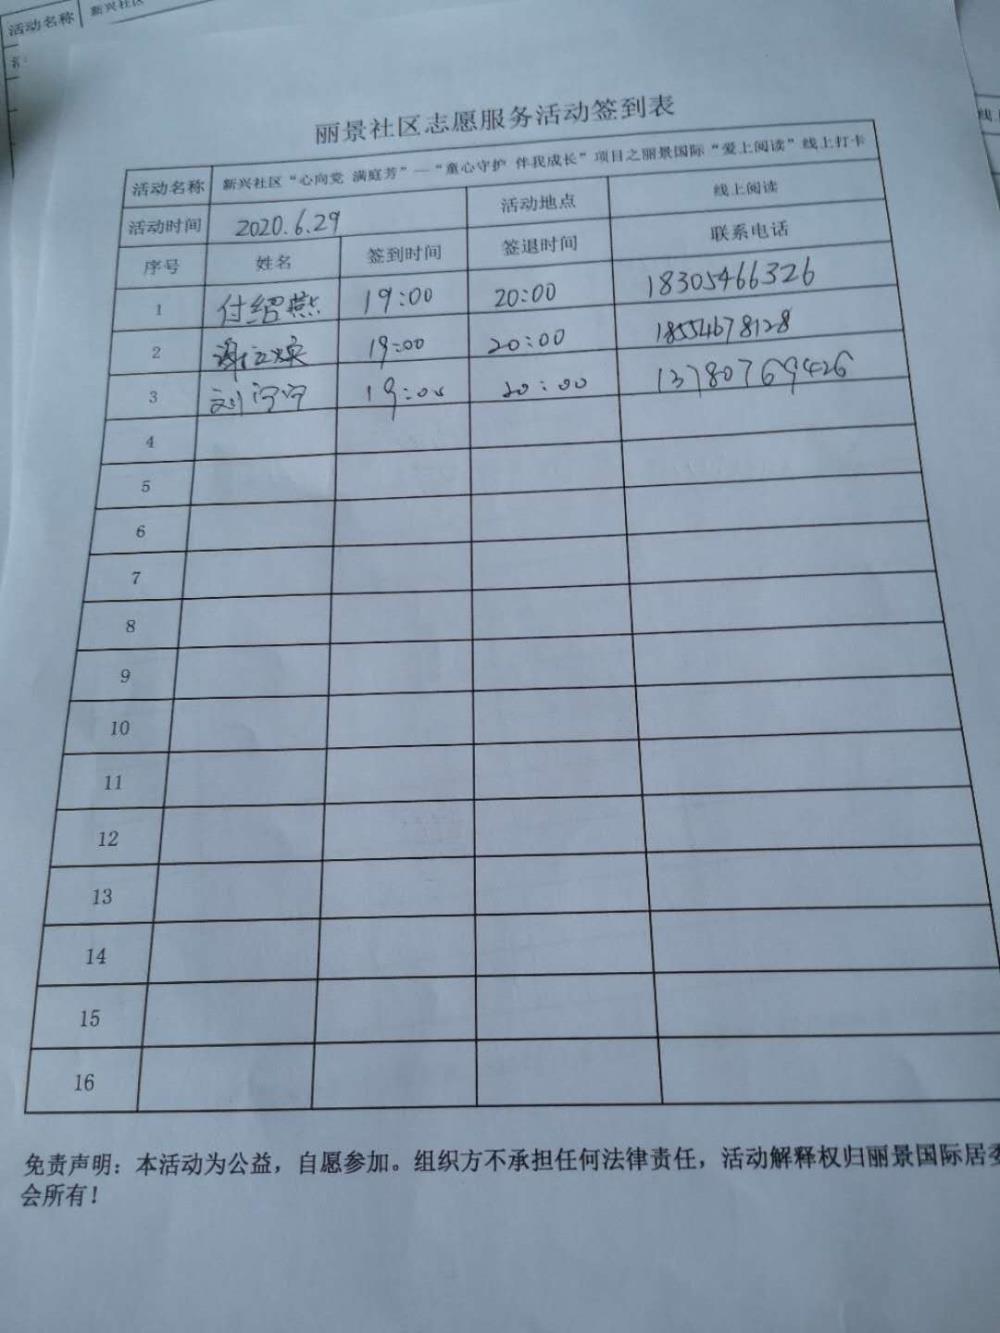 活动名称 新兴社区
丽景社区志愿服务活动签到表
活动名称 新兴社区“心向党 满庭芳”—“童心守护 伴我成长”项目之丽景国际“爱上阅读”线上打卡
活动时间 2020.6.29 活动地点 线上阅读
序号 姓名 签到时间 签退时间 联系电话
1 付绍燕 19:00 20:00 18305466326
2 19:00 20:00 18554678128
3 刘宁宁 19:00 20:00 13780769426
4
5
6
7
8
9
10
11
12
13
14
15
16
免责声明：本活动为公益，自愿参加。组织方不承担任何法律责任，活动解释权归丽景国际居委
会所有！